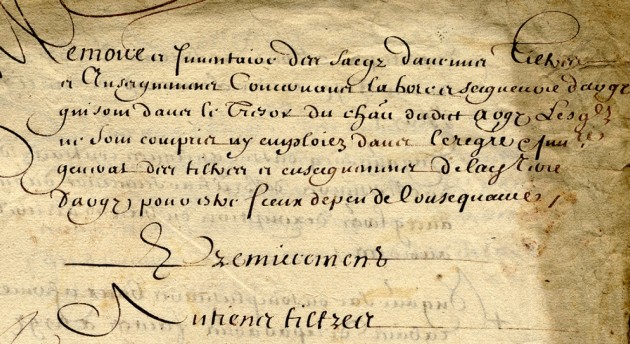 Memoire et Inventaire des sacqz daucuns tiltres
et Enseignemens Concernans la terre et seigneurie daugy
qui sont dans le Tresor du chau dudict Augy Lesqlz
ne sont compris ny emploiez dans le registre et Inre
general des tiltres et enseignemens de lad terre
daugy pour estre ceux de peu de consequance,
Premierement
Antiens tiltres